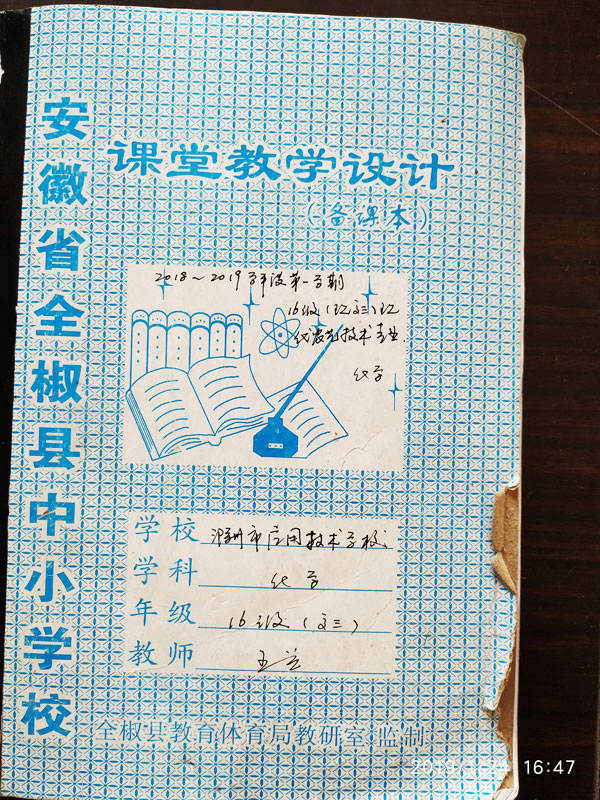 安徽省全椒县中小学校
课堂教学设计
(备课本)
2018～2019学年度第一学期
16级
技术专业
化学
学校 滁州市应用技术学校
学科 化学
年级 16级(文三)
教师 王
全椒县教育体育局教研室 监制
16:47